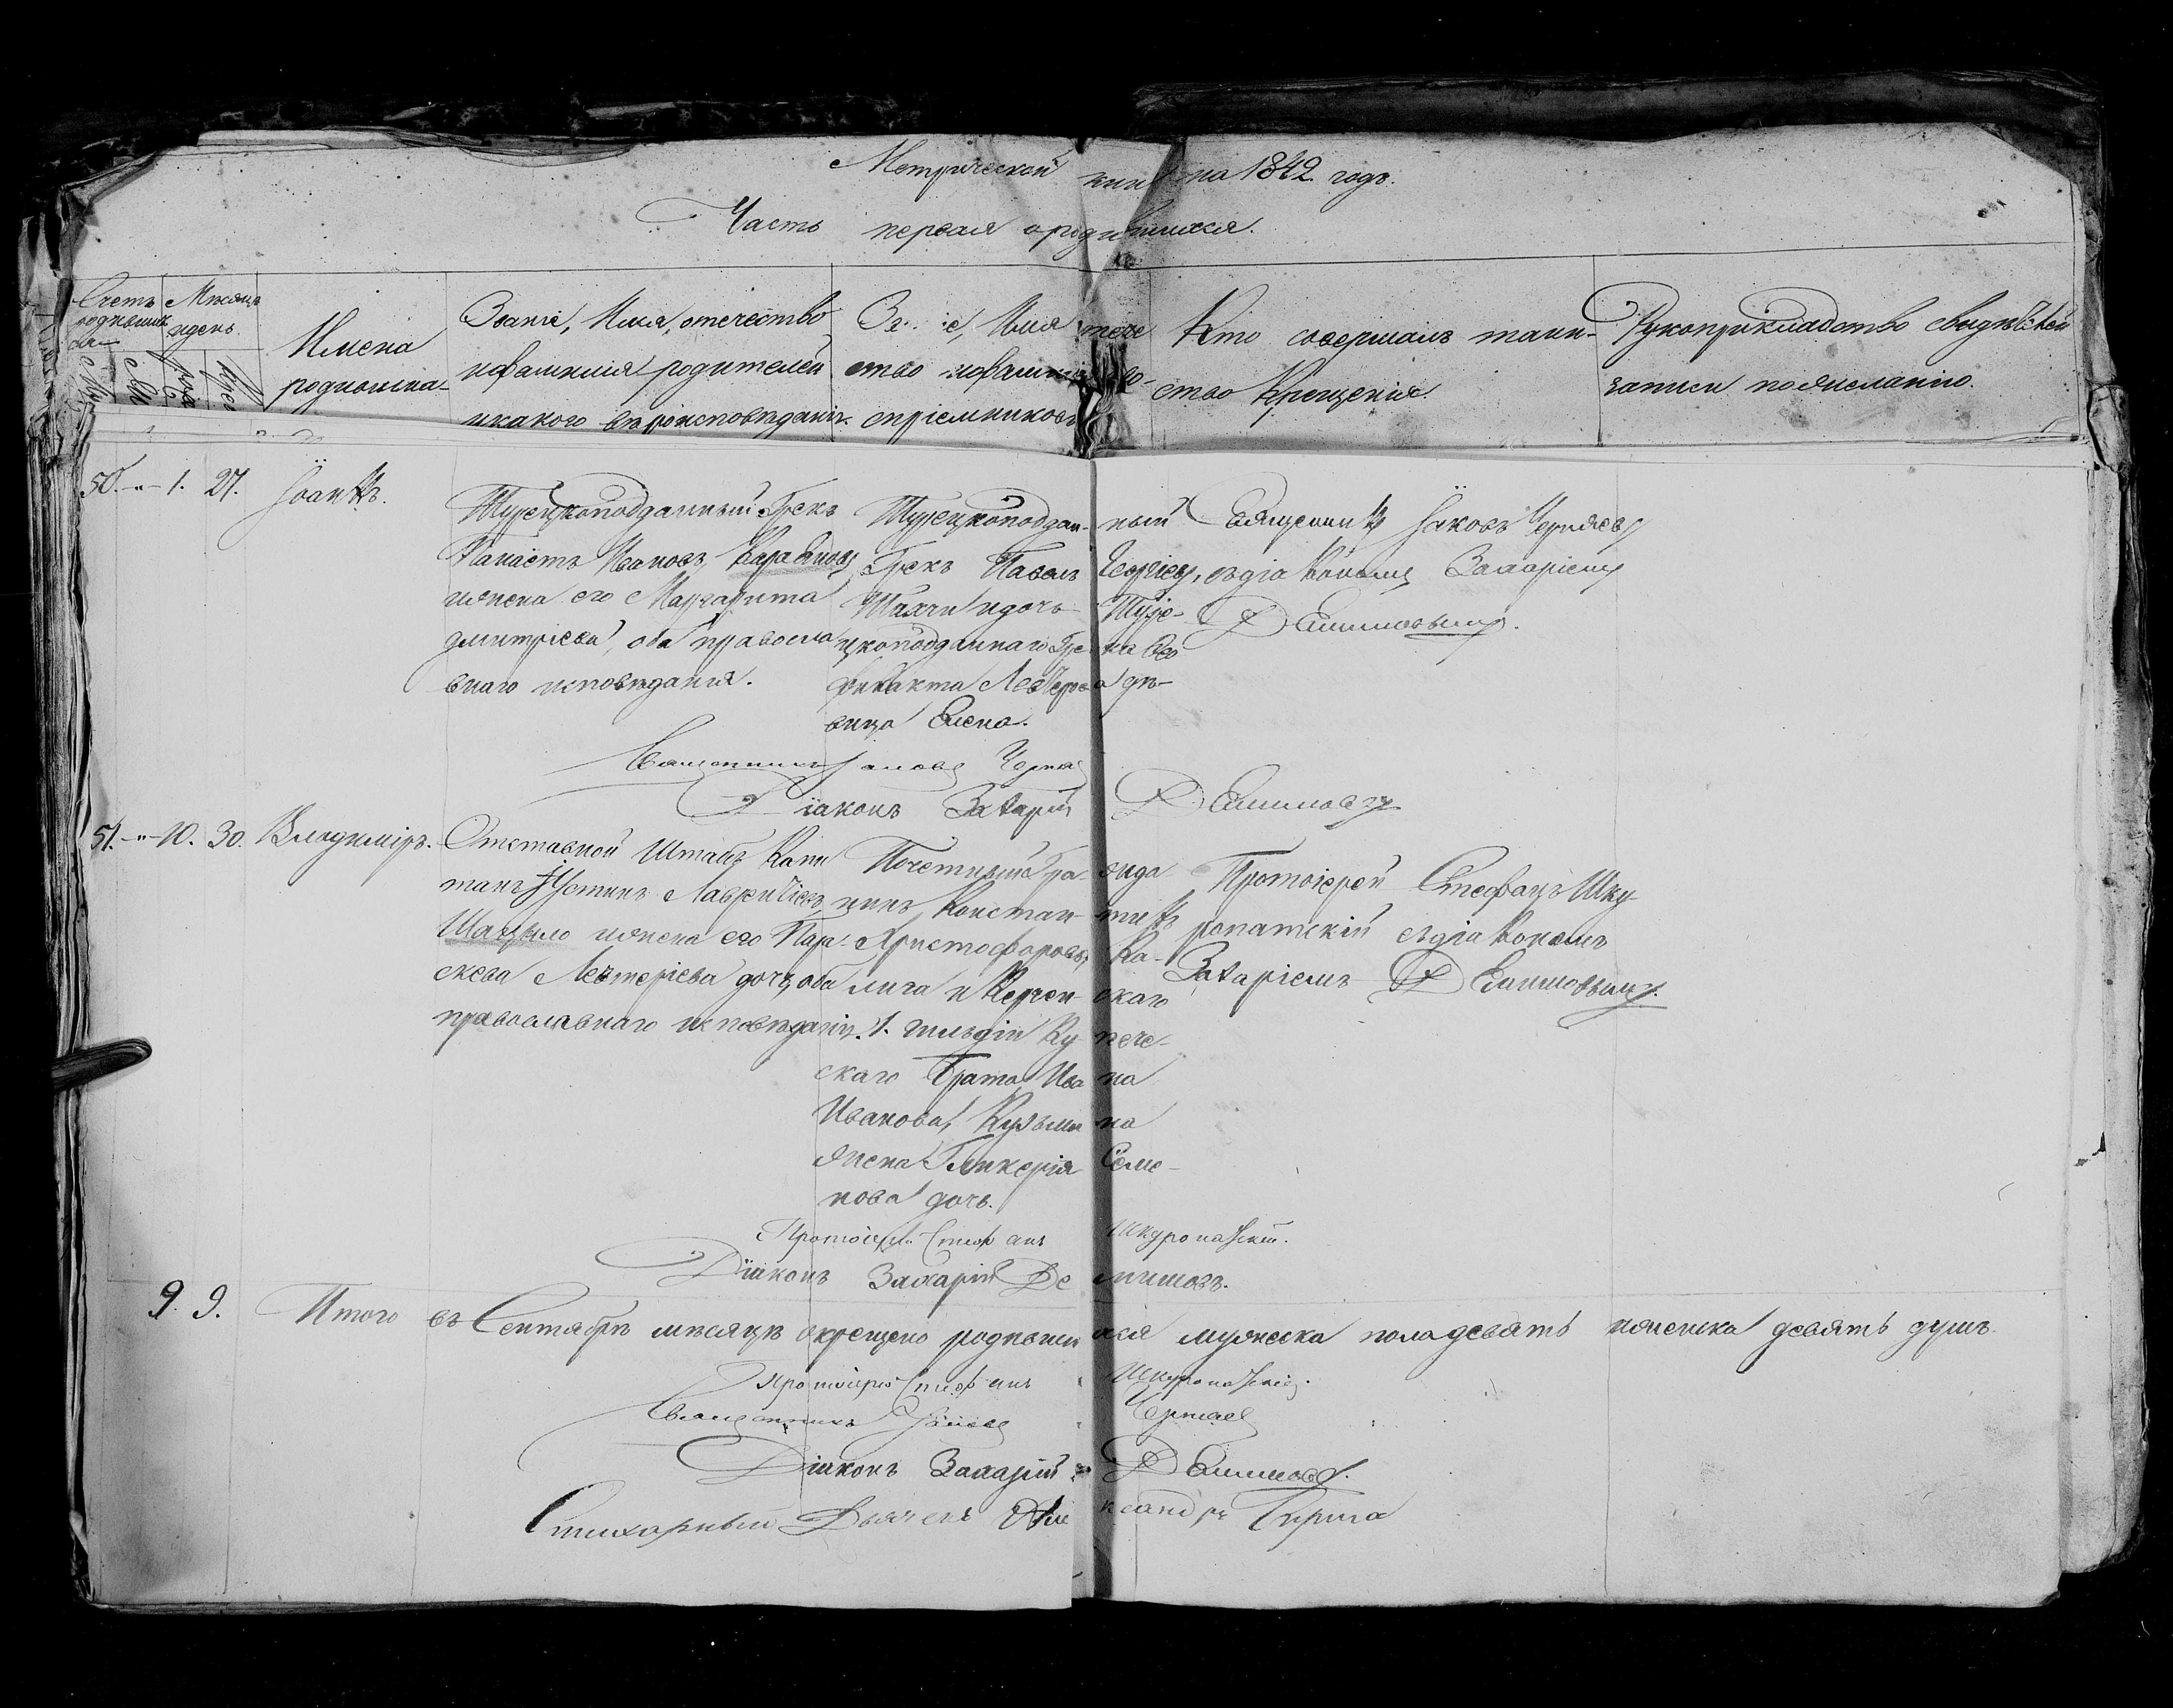 Метрической книги на 1842 годъ.
Часть первая о родившихся.
Счетъ родившихся
Мѣсяцъ и день
Имена родившихся
Званіе, Имя, отчество и фамилія родителей и какого вѣроисповѣданія.
Званіе, Имя отчество и фамилія воспріемниковъ
Кто совершалъ таинство Крещенія.
Рукоприкладство свидѣтелей записи по желанію.
50. -"- 1. 27. Іоаннъ.
Турецкоподданный Грекъ
Панаістъ Ивановъ
и жена его Маргарита
Дмитріева, оба православ
наго исповѣданія.
Турецкоподданный
Грекъ Павелъ Георгіевъ
и дочь Туре-
цкоподданнаго Грека Ѳео
дѣ-
вица Елена.
Священникъ Іаковъ Черняевъ
съ діакономъ Захаріемъ
Демишовымъ.
Священникъ Іаковъ Черняевъ
Діаконъ Захарій Демишовъ
51. -"- 10. 30. Владиміръ.
Отставной Штабъ Капи
танъ Устинъ Лаврентіевъ
Шацило и жена его Пар-
скева Левтеріева дочь, оба
православнаго исповѣданія.
Почетный Гражда
нинъ Константинъ
Христофоровъ, Ка-
лига и Керченскаго
1. гильдіи Купече-
скаго Брата Ивана
Иванова, Кузьмина
жена Гликерія Семе-
нова дочь.
Протоіерей Стефанъ Шку-
ропатскій съ діакономъ
Захаріемъ Демишовымъ.
Протоіерей Стефанъ Шкуропатскій.
Діаконъ Захарій Демишовъ.
9. 9. Итого въ Сентябрѣ мѣсяцѣ окрещено родившихся мужеска пола девять женска девять душъ.
Протоіерей Стефанъ Шкуропатскій.
Священникъ Іаковъ Черняевъ
Діаконъ Захарій Демишовъ.
Стихарный Дьячекъ Александръ